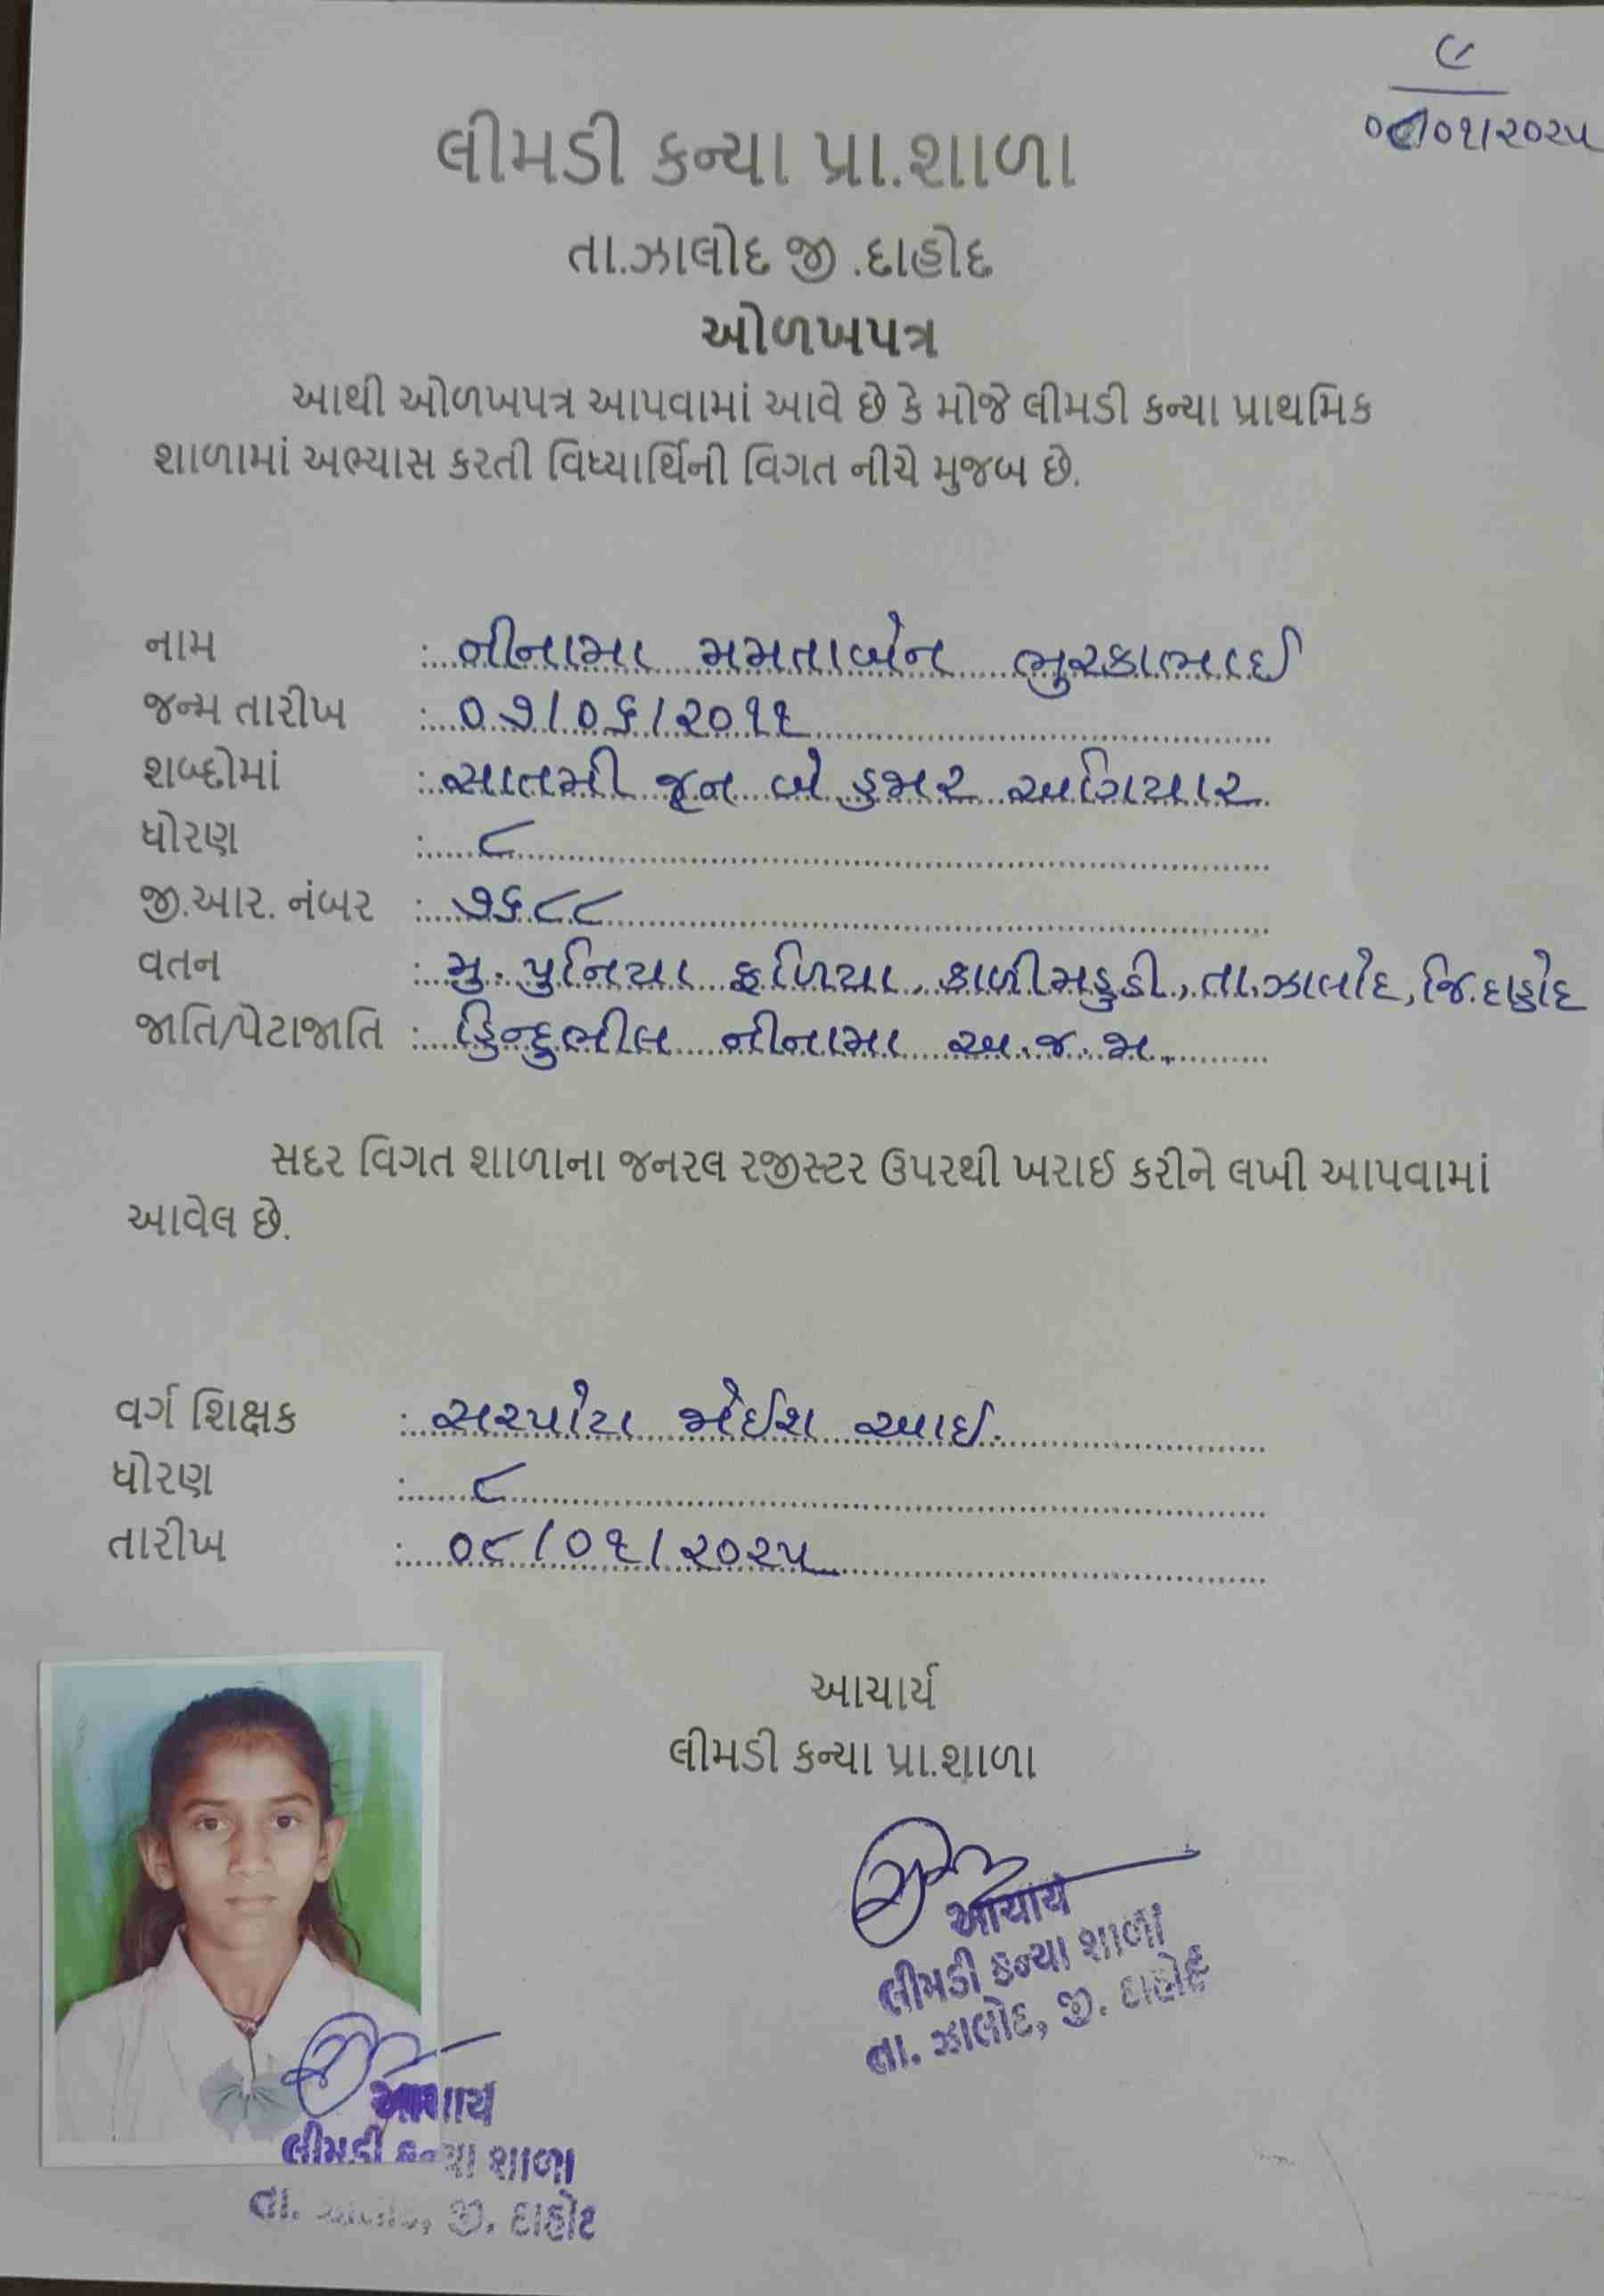 ૯
૦૮/૦૧/૨૦૨૫
લીમડી કન્યા પ્રા.શાળા
તા.ઝાલોદ જી .દાહોદ
ઓળખપત્ર
આથી ઓળખપત્ર આપવામાં આવે છે કે મોજે લીમડી કન્યા પ્રાથમિક
શાળામાં અભ્યાસ કરતી વિધ્યાર્થિની વિગત નીચે મુજબ છે.
નામ : નીનામા મમતાબેન ભુરકાભાઈ
જન્મ તારીખ : ૦૭/૦૬/૨૦૧૧
શબ્દોમાં : સાતમી જૂન બે હજાર અગિયાર
ધોરણ : ૮
જી.આર. નંબર : ૭૬૮૮
વતન : મુ. પુનિયા ફળિયા, કાળીમહુડી, તા.ઝાલોદ, જિ.દાહોદ
જાતિ/પેટાજાતિ : હિન્દુભીલ નીનામા અ.જ.જા.
સદર વિગત શાળાના જનરલ રજીસ્ટર ઉપરથી ખરાઈ કરીને લખી આપવામાં
આવેલ છે.
વર્ગ શિક્ષક : સરપોટા આઈ.
ધોરણ : ૮
તારીખ : ૦૮/૦૧/૨૦૨૫
આચાર્ય
લીમડી કન્યા પ્રા.શાળા
આચાર્ય
લીમડી કન્યા શાળા
તા. ઝાલોદ, જી. દાહોદ
આચાર્ય
લીમડી કન્યા શાળા
તા. ઝાલોદ, જી. દાહોદ